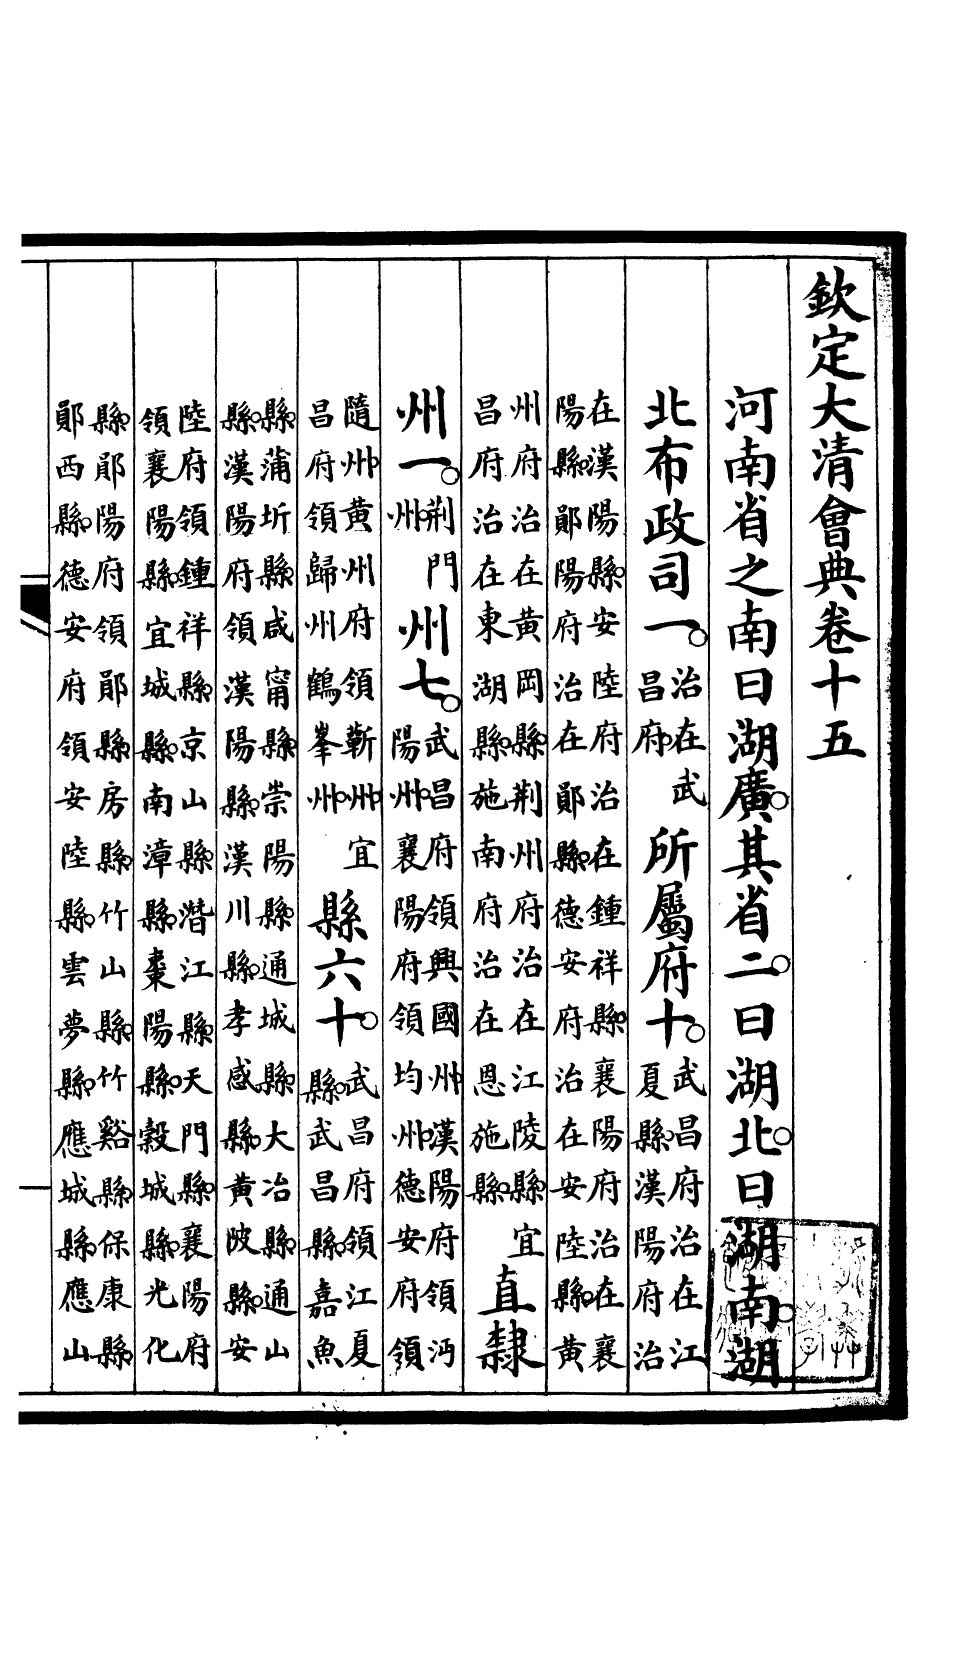 欽定大清會典卷十五
河南省之南曰湖廣。其省二。曰湖北。曰湖南。湖
北布政司一。
治在武
昌府。
所屬府十。
武昌府治在江
夏縣。漢陽府治
在漢陽縣。安陸府治在鍾祥縣。襄陽府治在襄
陽縣。鄖陽府治在鄖縣。德安府治在安陸縣。黃
州府治在黃岡縣。荆州府治在江陵縣。宜
昌府治在東湖縣。施南府治在恩施縣。
直隸
州一。
荆門
州。
州七。
武昌府領興國州。漢陽府領沔
陽州。襄陽府領均州。德安府領
隨州。黃州府領蘄州。宜
昌府領歸州鶴峯州。
縣六十。
武昌府領江夏
縣。武昌縣。嘉魚
縣。蒲圻縣。咸甯縣。崇陽縣。通城縣。大冶縣。通山
縣。漢陽府領漢陽縣。漢川縣。孝感縣。黃陂縣。安
陸府領鍾祥縣。京山縣。潛江縣。天門縣。襄陽府
領襄陽縣。宜城縣。南漳縣。棗陽縣。穀城縣。光化
縣。鄖陽府領鄖縣。房縣。竹山縣。竹谿縣。保康縣。
鄖西縣。德安府領安陸縣。雲夢縣。應城縣。應山